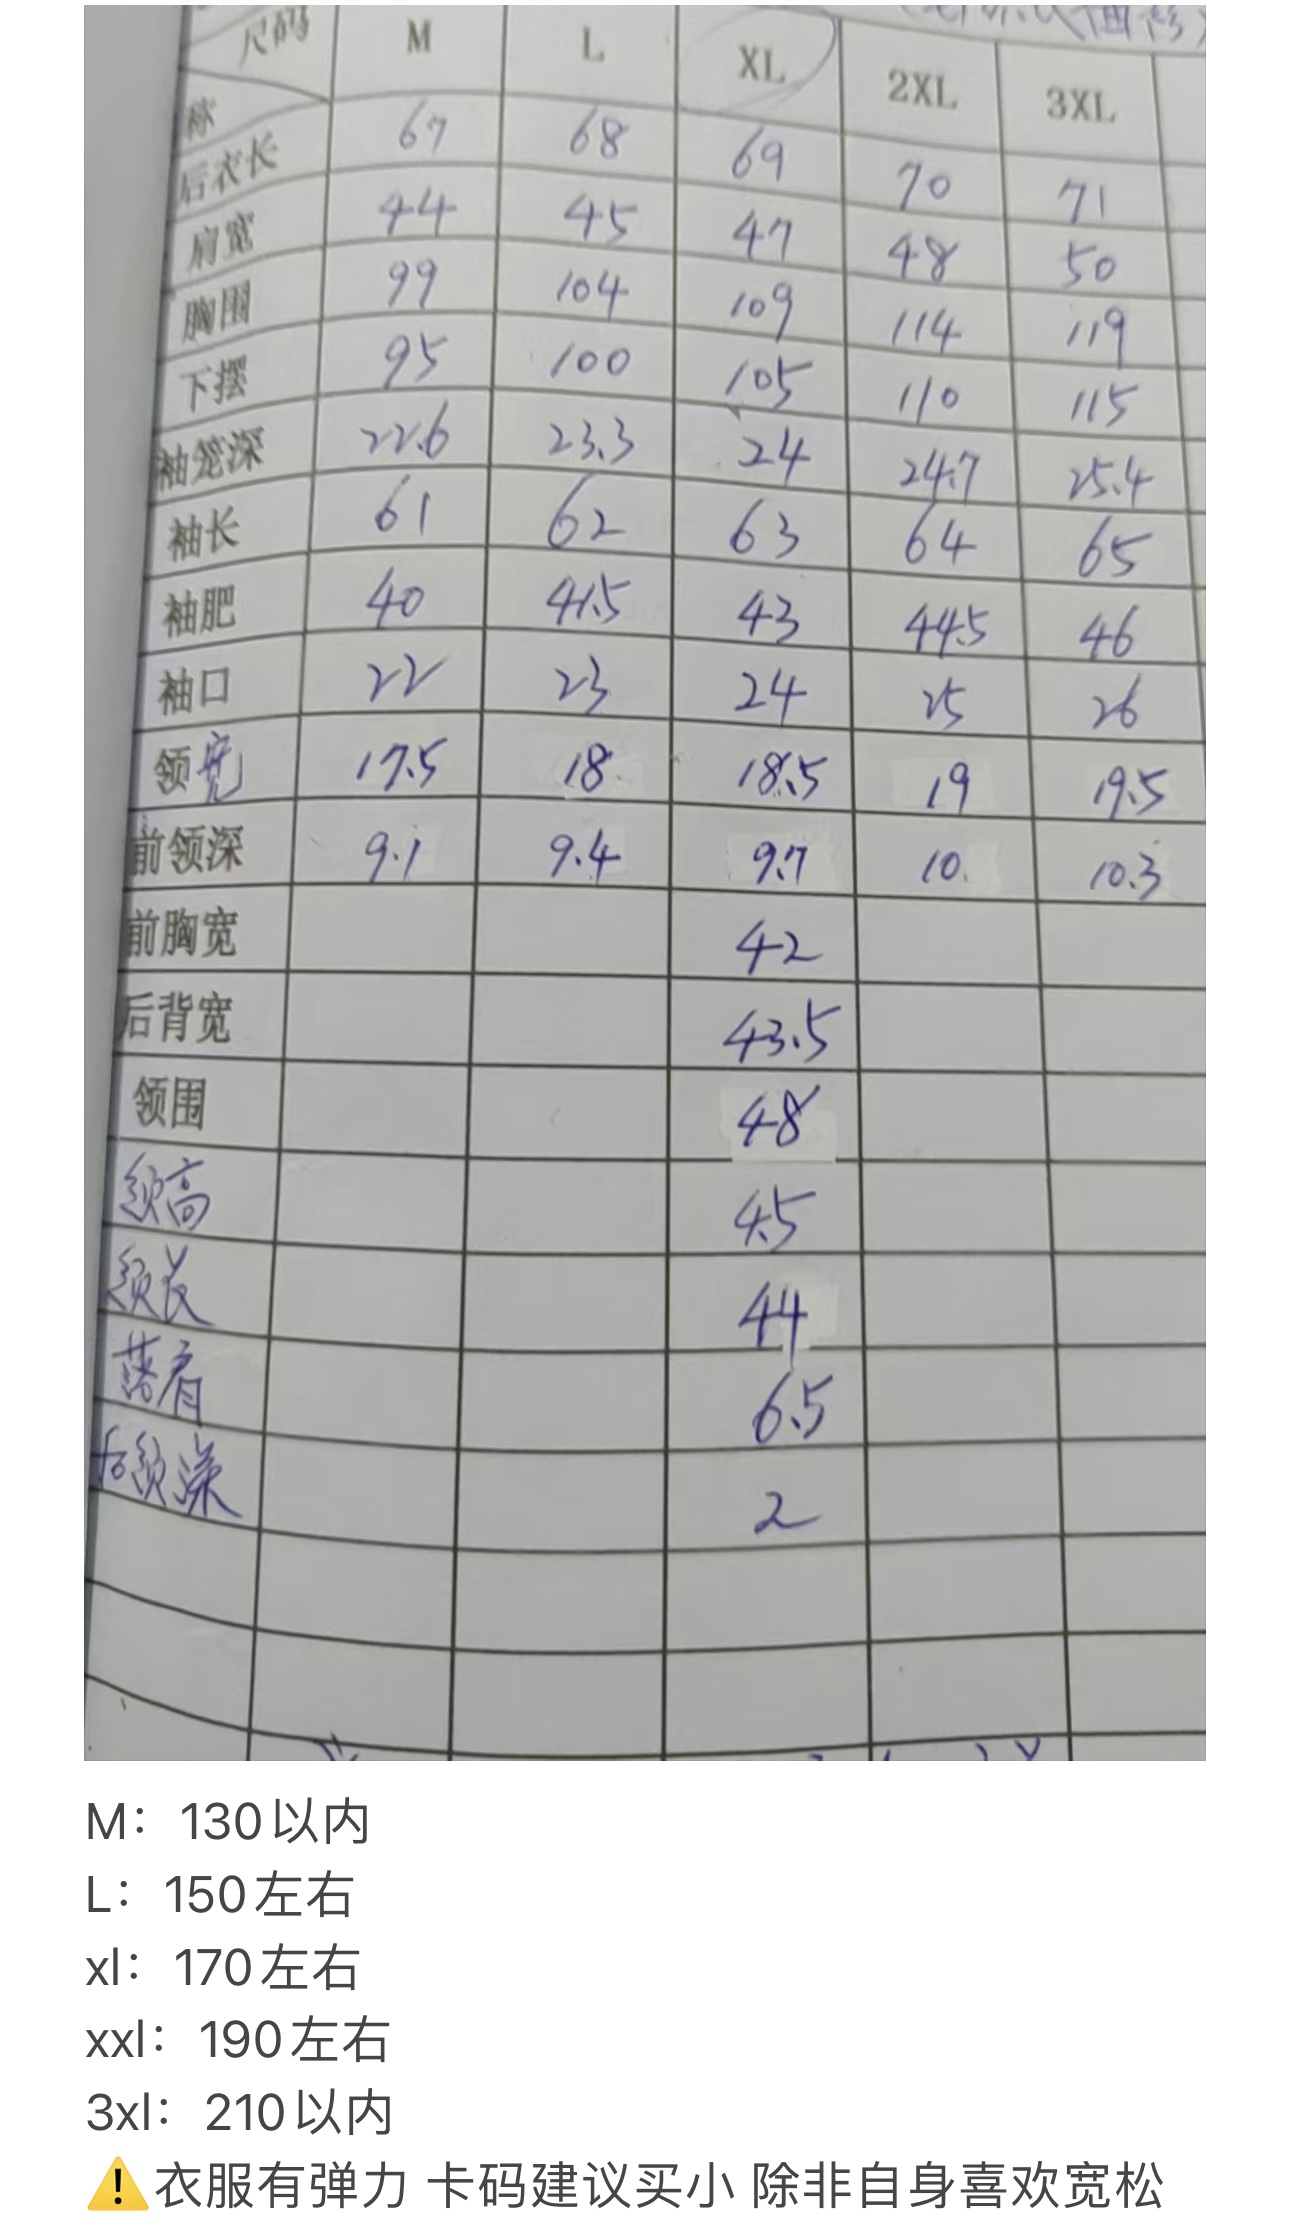 尺码 M L XL 2XL 3XL
称
后衣长 67 68 69 70 71
肩宽 44 45 47 48 50
胸围 99 104 109 114 119
下摆 95 100 105 110 115
袖笼深 22.6 23.3 24 24.7 25.4
袖长 61 62 63 64 65
袖肥 40 41.5 43 44.5 46
袖口 22 23 24 25 26
领宽 17.5 18 18.5 19 19.5
前领深 9.1 9.4 9.7 10. 10.3
前胸宽 42
后背宽 43.5
领围 48
领高 4.5
领长 44
落肩 6.5
后领深 2
M：130以内
L：150左右
xl：170左右
xxl：190左右
3xl：210以内
⚠️衣服有弹力 卡码建议买小 除非自身喜欢宽松